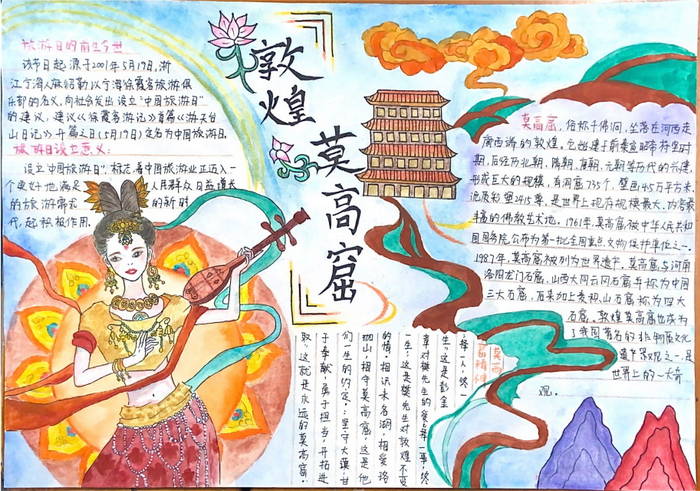 敦煌
莫高窟
旅游日的前生今世
该节日起源于2001年5月19日,浙
江宁海人麻绍勤以宁海徐霞客旅游俱
乐部的名义,向社会发出设立"中国旅游日"
的建议,建议《徐霞客游记》首篇《游天台
山日记》开篇之日(5月19日)定名为中国旅游日。
旅游日设立意义:
设立"中国旅游日",标志着中国旅游业正迈入一
个更好地满足 人民群众日益增长
的旅游需求 的新时
代,起积极作用.
莫高窟,俗称千佛洞,坐落在河西走
廊西端的敦煌,它始建于前秦宣昭帝苻坚时
期,后经历北朝、隋朝、唐朝、元朝等历代的兴建,
形成巨大的规模,有洞窟735个,壁画4.5万平方米
泥质彩塑2415尊,是世界上现存规模最大、内容最
丰富的佛教艺术地。1961年,莫高窟被中华人民共和
国国务院公布为第一批全国重点文物保护单位之一.
1987年,莫高窟被列为世界遗产.莫高窟与河南
洛阳龙门石窟,山西大同云冈石窟并称为中国
三大石窟,后来加上麦积山石窟称为四大
石窟。敦煌莫高窟也成为
了我国著名的 文化
遗产景观之一,是
世界上的一大奇
观。
莫高
窟精神
择一人,终
生。这是彭金
章对樊先生的爱;择一事,终
一生,这是樊先生对敦煌不变
的情.相识未名湖,相爱珞
珈山,相守莫高窟,这是他
们一生的约定。:坚守大漠,甘
于奉献,勇于担当,开拓进
取,这就是永远的莫高窟.